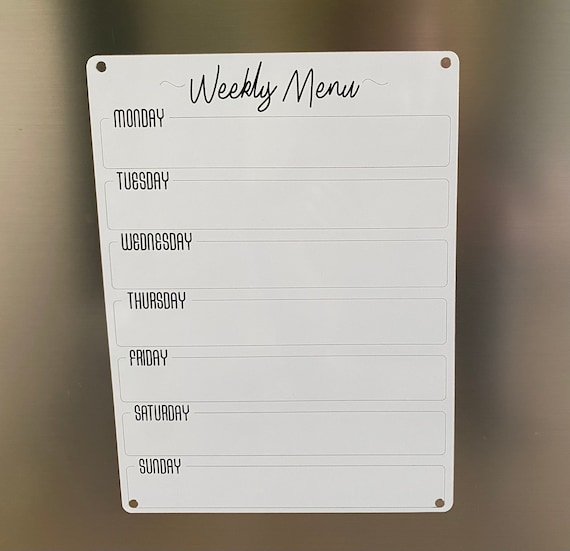 Weekly Menu
MONDAY
TUESDAY
WEDNESDAY
THURSDAY
FRIDAY
SATURDAY
SUNDAY